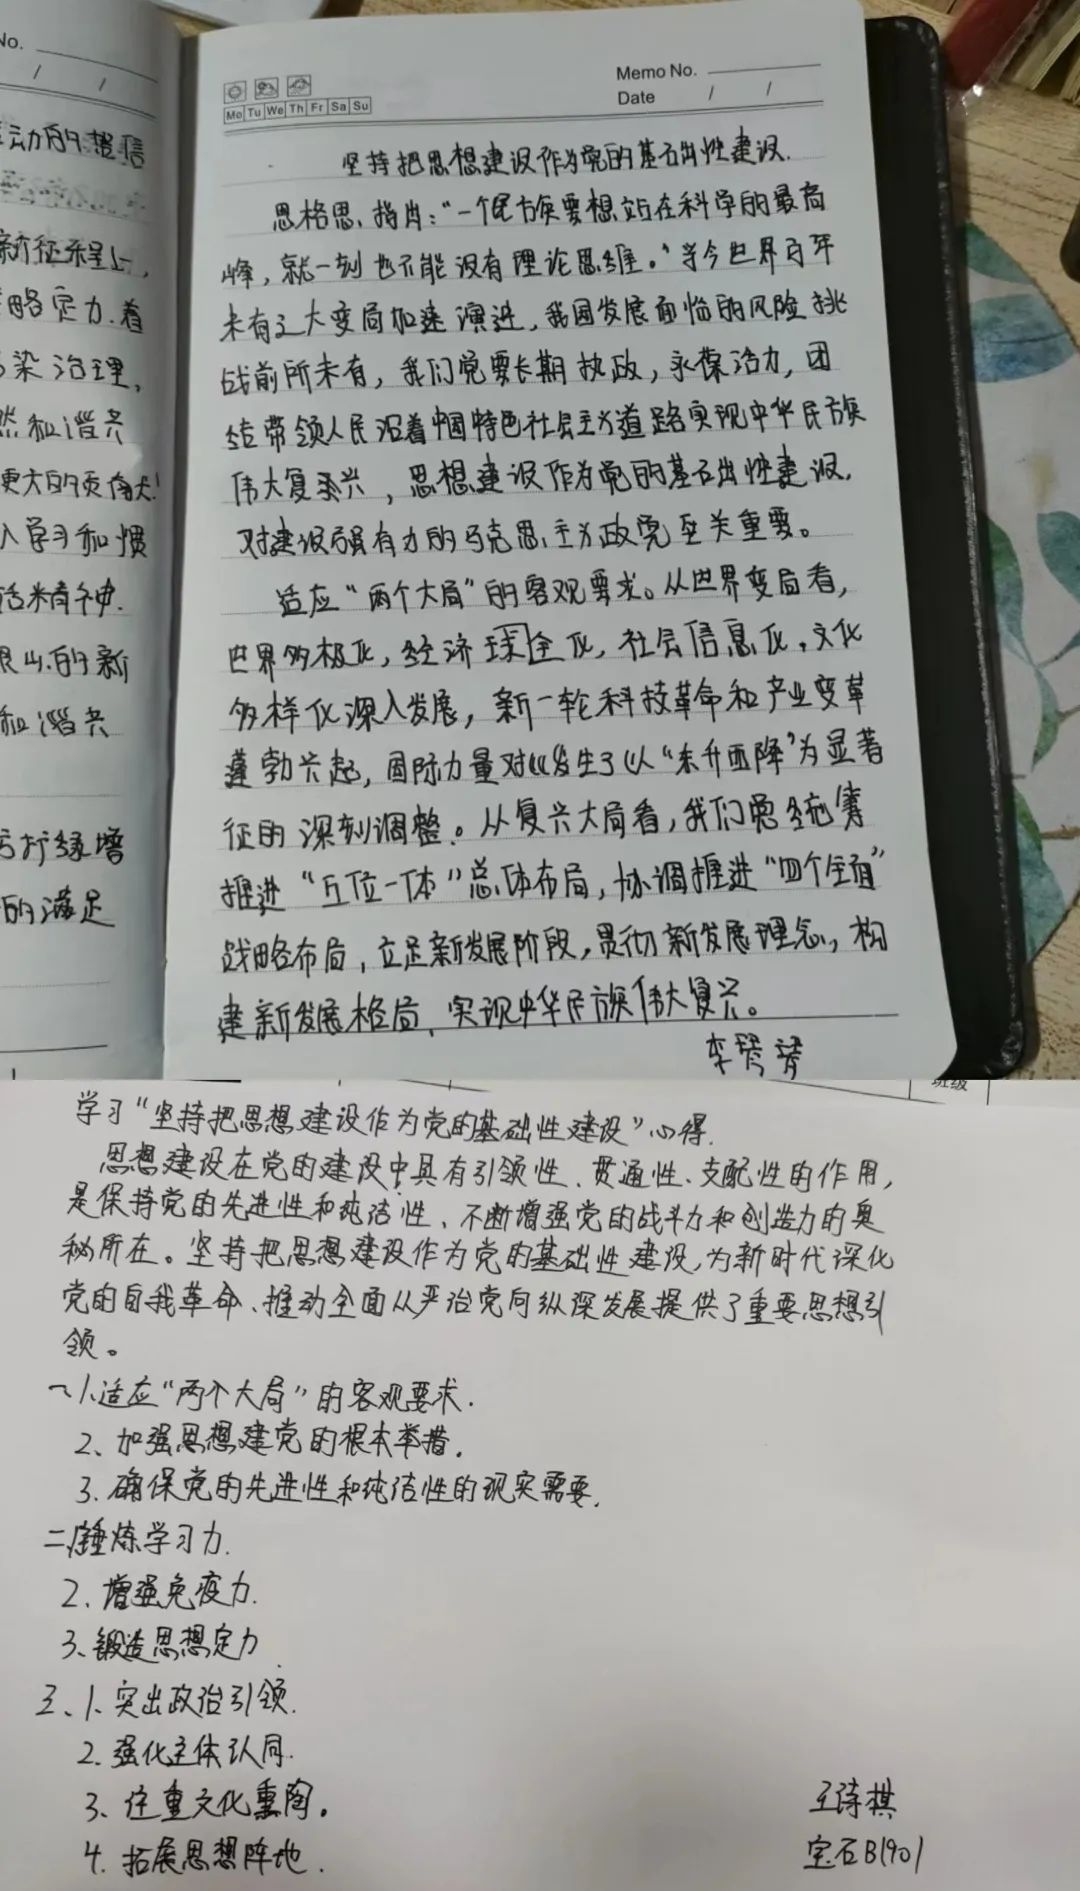 No.
/ /
动的
新征程上，
略定力.着
染治理，
然和谐共
更大的贡献！
入学习和惯
话精神.
的新
和谐共
扩绿增
的满足
Mo Tu We Th Fr Sa Su
Memo No.
Date / /
坚持把思想建设作为党的基础性建设.
恩格思.指出：“一个民族要想站在科学的最高
峰，就一刻也不能没有理论思维。”当今世界百年
未有之大变局加速演进，我国发展面临的风险挑
战前所未有，我们党要长期执政，永葆活力，团
结带领人民沿着中国特色社会主义道路实现中华民族
伟大复兴，思想建设作为党的基础性建设，
对建设强有力的马克思主义政党至关重要。
适应“两个大局”的客观要求。从世界变局看，
世界多极化，经济球全化，社会信息化，文化
多样化深入发展，新一轮科技革命和产业变革
蓬勃兴起，国际力量对比发生了以“东升西降”为显著
征的深刻调整。从复兴大局看，我们党统筹
推进“五位一体”总体布局，协调推进“四个全面”
战略布局，立足新发展阶段，贯彻新发展理念，构
建新发展格局，实现中华民族伟大复兴。
班级
学习“坚持把思想建设作为党的基础性建设”心得.
思想建设在党的建设中具有引领性、贯通性、支配性的作用，
是保持党的先进性和纯洁性、不断增强党的战斗力和创造力的奥
秘所在。坚持把思想建设作为党的基础性建设，为新时代深化
党的自我革命、推动全面从严治党向纵深发展提供了重要思想引
领。
一1.适应“两个大局”的客观要求.
2、加强思想建党的根本举措.
3.确保党的先进性和纯洁性的现实需要.
二、锤炼学习力.
2.增强免疫力.
3、锻造思想定力
三、1、突出政治引领.
2.强化主体认同.
3、注重文化熏陶。
4.拓展思想阵地.
王诗棋
宝石B1901